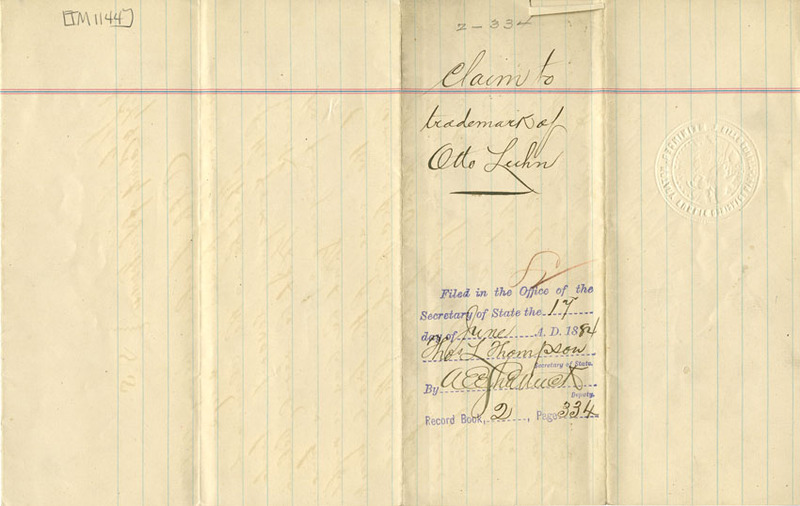 [TM1144]
2-334
Claim to
trademark of
Otto Luhn
Filed in the Office of the
Secretary of State the 17
day of June A. D. 1884
Thos L Thompson
Secretary of State.
By
Deputy.
Record Book, 2, Page 334